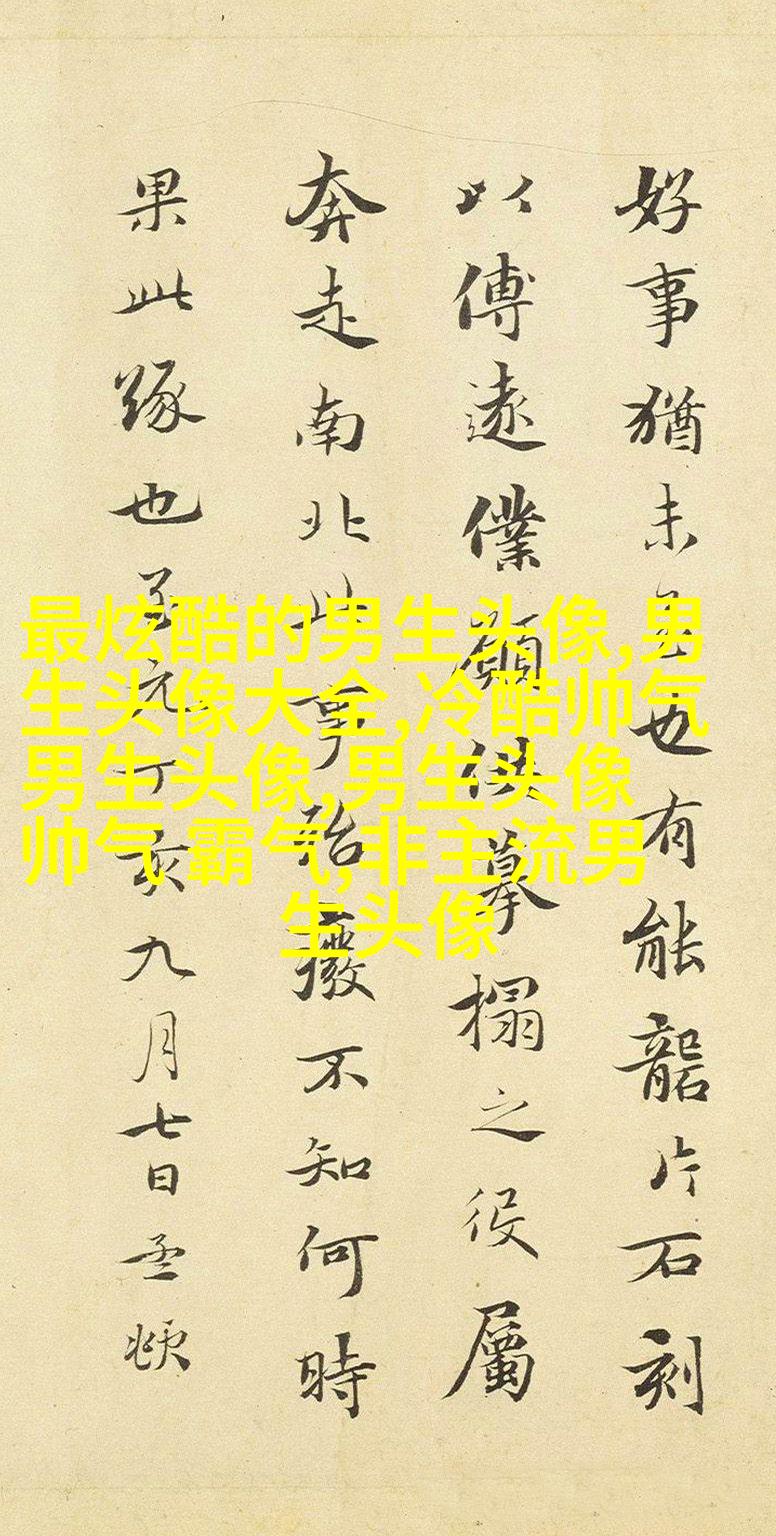 好事猶未也有能礱片石刻
以傳遠僕願供摹搨之役屬
奔走南北此事殆廢不知何時
果此緣也至元丁亥九月七日孟頫
最炫酷的男生头像,男
生头像大全,冷酷帅气
男生头像,男生头像
帅气 霸气,非主流男
生头像